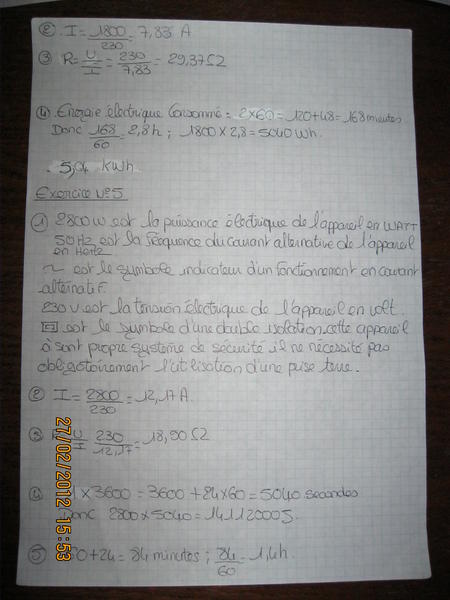 ② I = 1800/230 = 7,83 A
③ R = U/I = 230/7,83 = 29,37 Ω
④ Energie électrique Consommé = 2x60 = 120+48 = 168 minutes
Donc 168/60 = 2,8h ; 1800 x 2,8 = 5040 Wh.
5,04 kWh
Exercice N°5
① 2800 W est la puissance électrique de l'appareil en WATT
50 Hz est la fréquence du courant alternative de l'appareil
en Hertz
~ est le symbole indicateur d'un fonctionnement en courant
alternatif.
230 V est la tension électrique de l'appareil en volt.
est le symbole d'une double isolation, cette appareil
à sont propre système de sécurité il ne nécessité pas
obligatoirement l'utilisation d'une prise terre.
② I = 2800/230 = 12,17 A.
③ R = U/I 230/12,17 = 18,90 Ω
④ x 3600 = 3600 + 24 x 60 = 5040 secondes
Donc 2800 x 5040 = 14112000 J.
⑤ 60 + 24 = 84 minutes ; 84/60 = 1,4h
27/02/2012 15:53